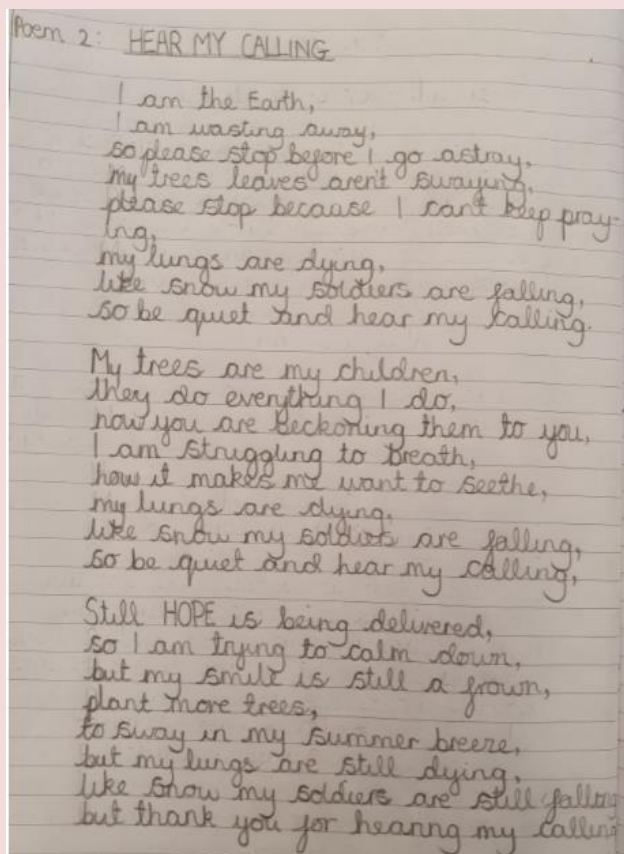 Poem 2: HEAR MY CALLING
I am the Earth,
I am wasting away,
so please stop before I go astray,
my trees leaves aren't swaying,
please stop because I can't keep pray-
ing,
my lungs are dying,
like snow my soldiers are falling,
so be quiet and hear my calling.
My trees are my children,
they do everything I do,
now you are beckoning them to you,
I am struggling to breath,
how it makes me want to seethe,
my lungs are dying,
like snow my soldiers are falling,
so be quiet and hear my calling,
Still HOPE is being delivered,
so I am trying to calm down,
but my smile is still a frown,
plant more trees,
to sway in my summer breeze,
but my lungs are still dying,
like snow my soldiers are still falling
but thank you for hearing my calling